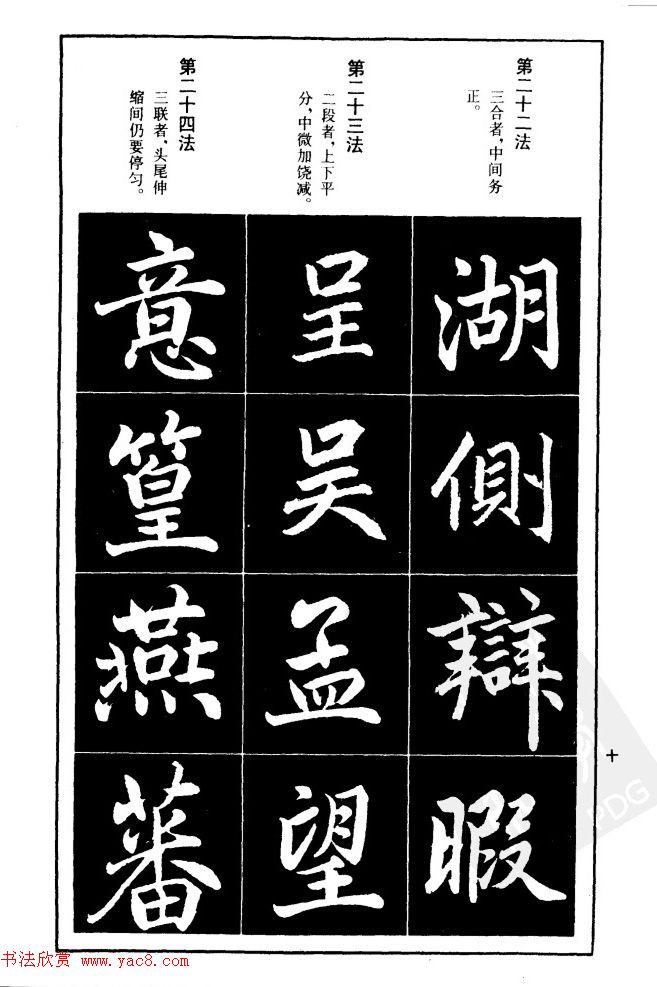 第二十二法
三合者，中间务
正。
湖
側
辯
暇
第二十三法
二段者，上下平
分，中微加饶减。
呈
吴
孟
望
第二十四法
三联者，头尾伸
缩间仍要停匀。
意
篁
燕
蕃
十
PDG
书法欣赏 www.yac8.com